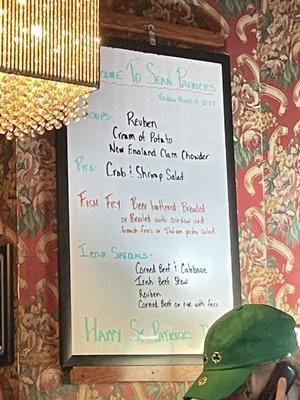 COME TO SEAN PATRICKS
Friday March 17, 2023
OUPS- Reuben
Cream of Potato
New England Clam Chowder
PITA- Crab & Shrimp Salad
FISH FRY- Beer battered, Breaded
or Broiled with coleslaw and
french fries or Italian pasta salad
IRISH SPECIALS-
Corned Beef & Cabbage
Irish Beef Stew
Reuben
Corned Beef on rye with fries
HAPPY ST PATRICKS D